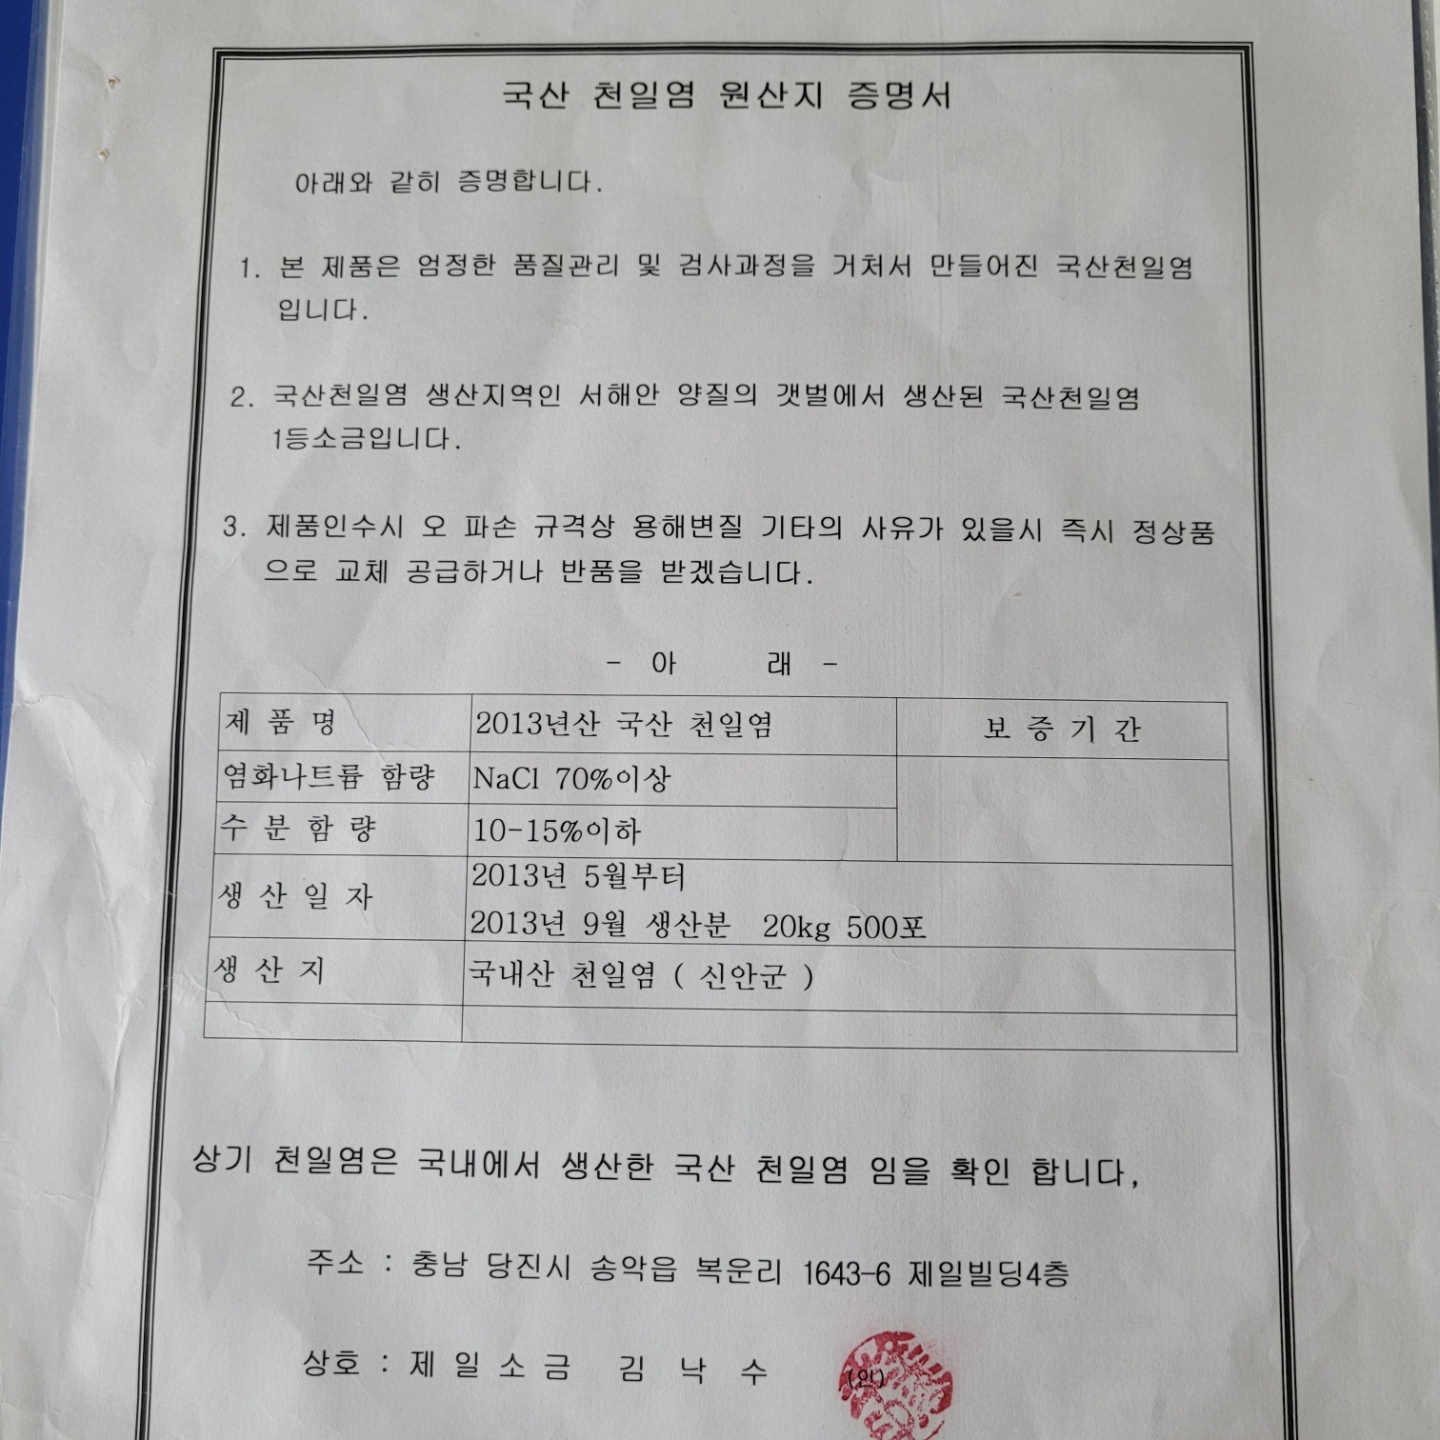 국산 천일염 원산지 증명서
아래와 같히 증명합니다.
1. 본 제품은 엄정한 품질관리 및 검사과정을 거처서 만들어진 국산천일염
입니다.
2. 국산천일염 생산지역인 서해안 양질의 갯벌에서 생산된 국산천일염
1등소금입니다.
3. 제품인수시 오 파손 규격상 용해변질 기타의 사유가 있을시 즉시 정상품
으로 교체 공급하거나 반품을 받겠습니다.
- 아 래 -
제 품 명 2013년산 국산 천일염 보 증 기 간
염화나트륨 함량 NaCl 70%이상
수 분 함 량 10-15%이하
생 산 일 자 2013년 5월부터
2013년 9월 생산분 20kg 500포
생 산 지 국내산 천일염 ( 신안군 )
상기 천일염은 국내에서 생산한 국산 천일염 임을 확인 합니다,
주소 : 충남 당진시 송악읍 복운리 1643-6 제일빌딩4층
상호 : 제 일 소 금 김 낙 수 (인)